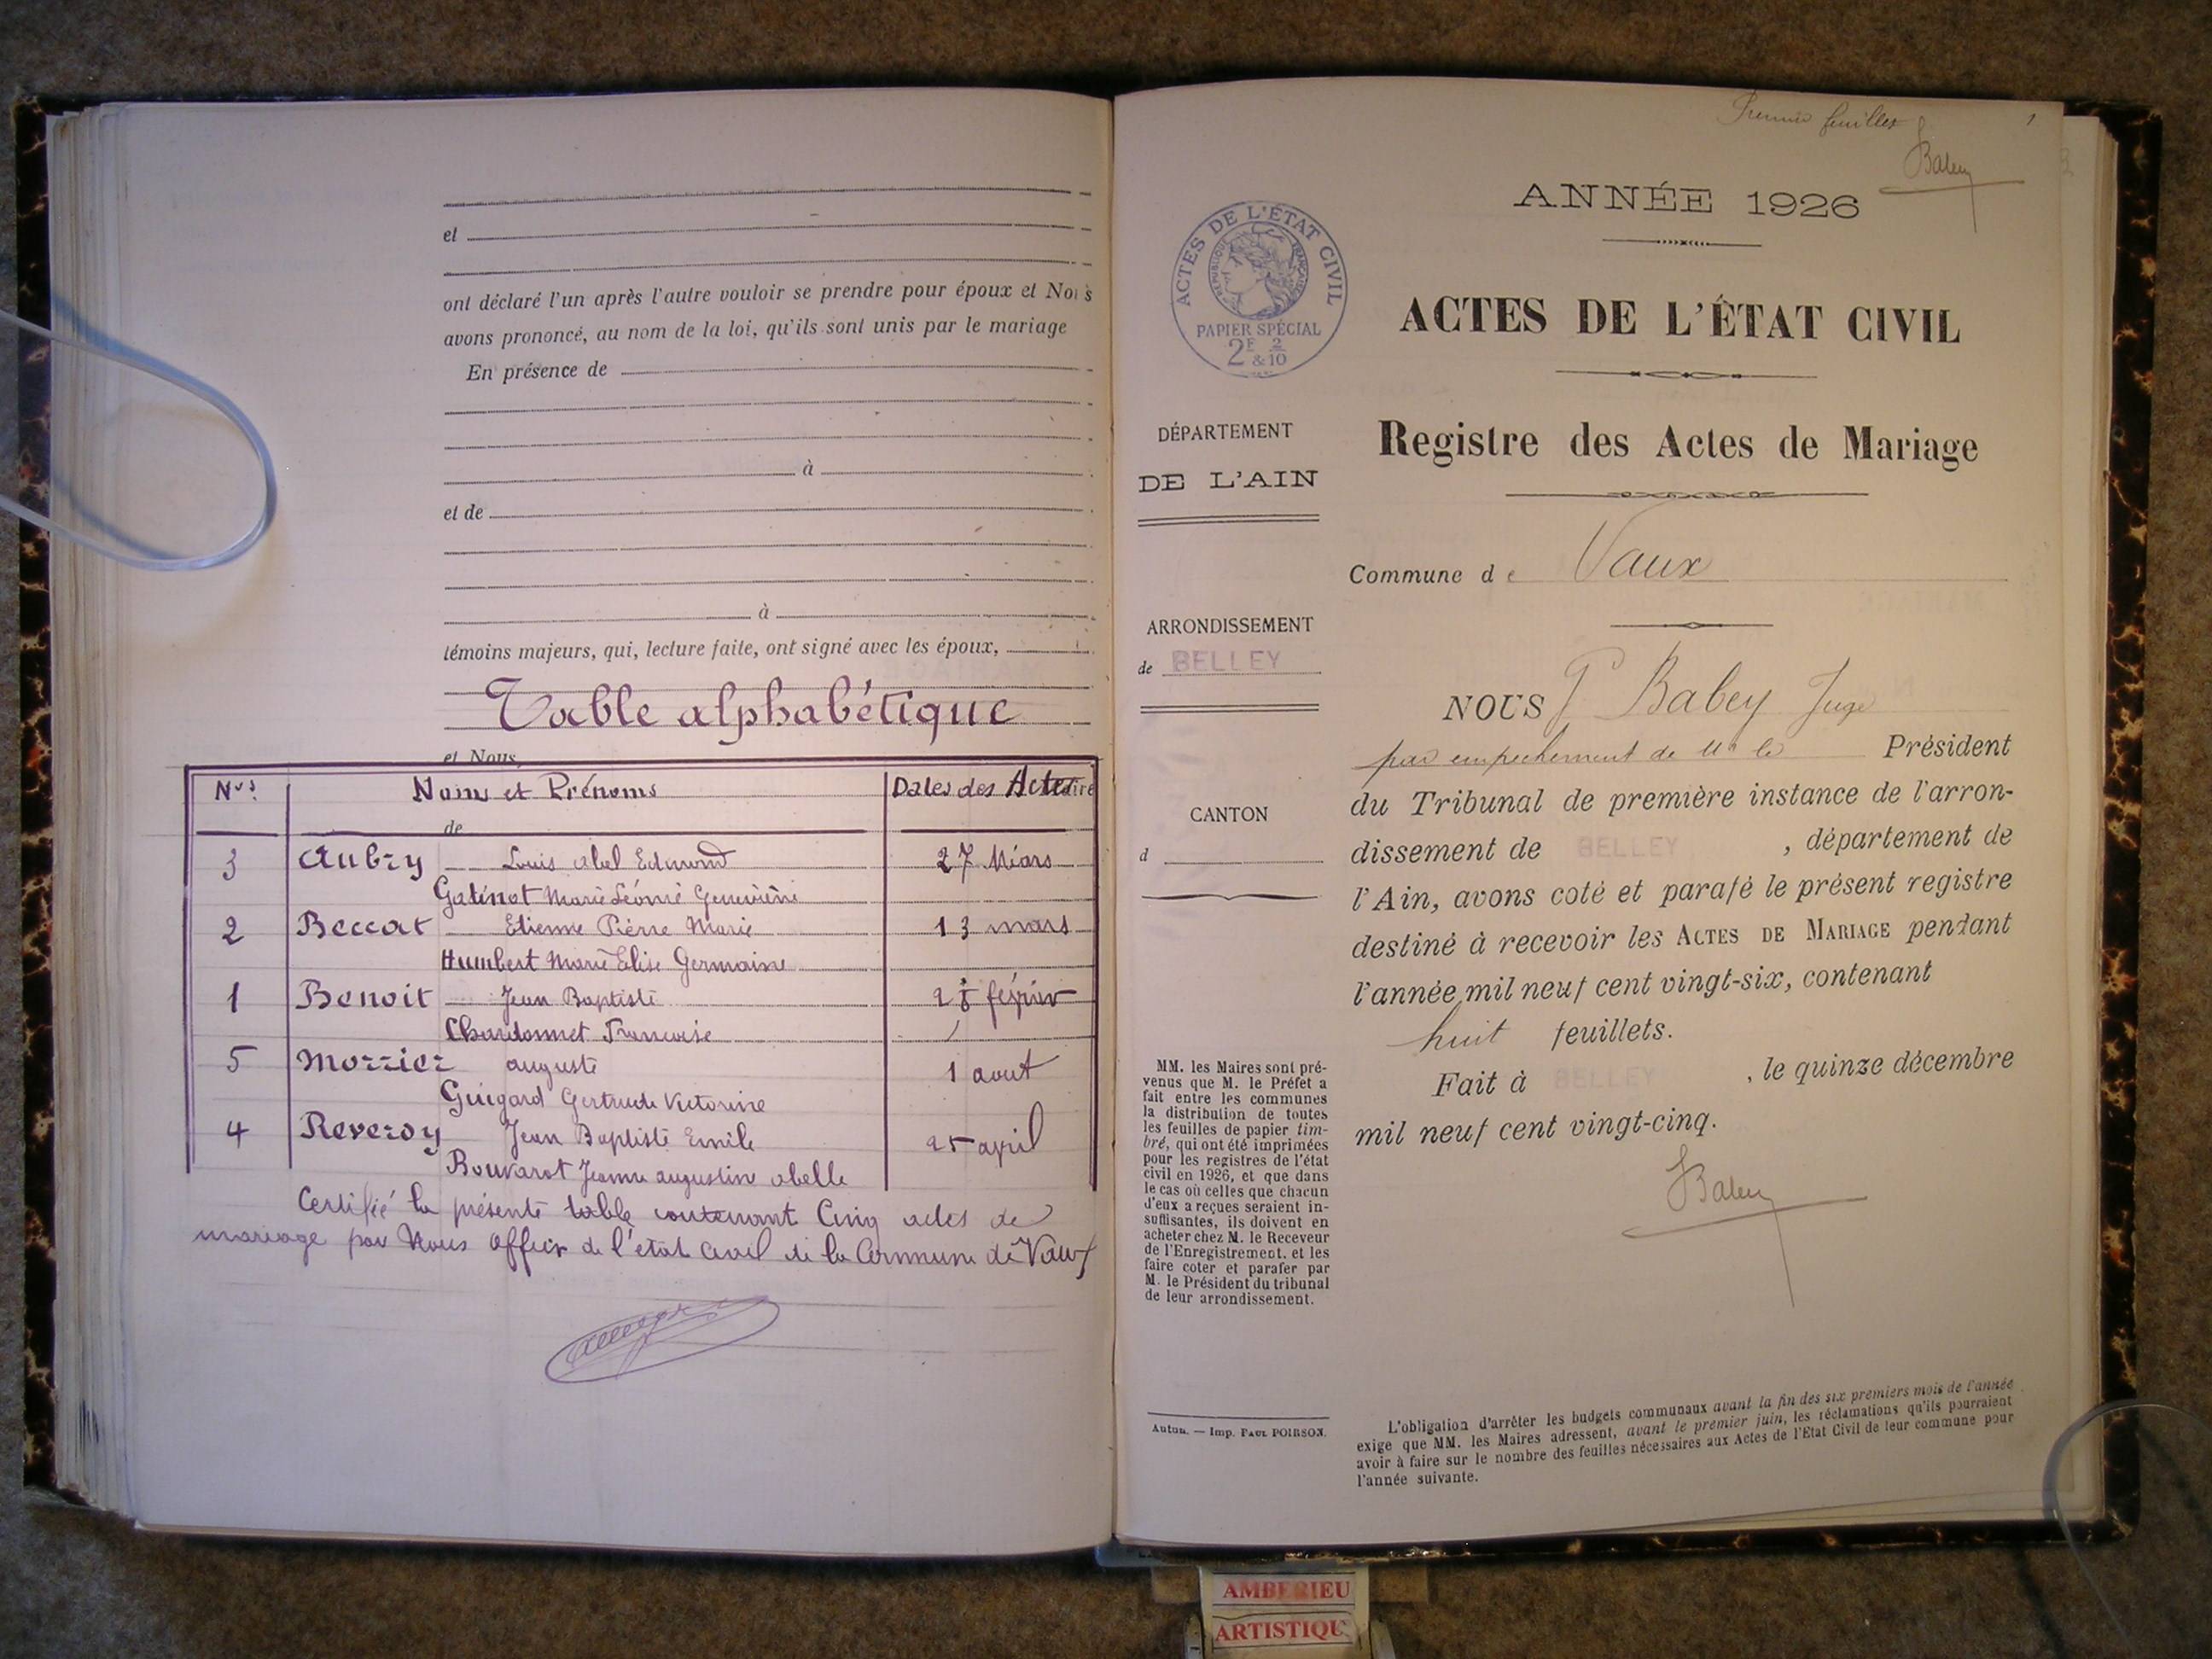 et
ont déclaré l'un après l'autre vouloir se prendre pour époux et Nous
avons prononcé, au nom de la loi, qu'ils sont unis par le mariage
En présence de
à
et de
à
témoins majeurs, qui, lecture faite, ont signé avec les époux,
Table alphabétique
et Nous,
Nos Nom et Prénoms Dates des Actes
de
3 Aubry Louis Abel Edmond 27 Mars
Gatinot Marie Léonie Geneviève
2 Beccat Etienne Pierre Marie 13 mars
Humbert Marie Elise Germaine
1 Benoit Jean Baptiste février
Chardonnet Francoise
5 Morrier auguste 1 aout
Guigard Gertrude Victorine
4 Reveroy Jean Baptiste Emile 25 avril
Bouvarot Jeanne augustine abelle
Certifié la présente table contenant Cinq actes de
mariage par Nous Officier de l'état Civil de la Commune de Vaux
Premier feuillet 1
Babey
ANNÉE 1926
ACTES DE L'ÉTAT CIVIL
RÉPUBLIQUE FRANÇAISE
PAPIER SPÉCIAL
2F & 2/10
ACTES DE L'ÉTAT CIVIL
Registre des Actes de Mariage
DÉPARTEMENT
DE L'AIN
Commune de Vaux
ARRONDISSEMENT
de BELLEY
CANTON
d
NOUS P Babey Juge
par empechement de Mr le Président
du Tribunal de première instance de l'arron-
dissement de BELLEY, département de
l'Ain, avons coté et parafé le présent registre
destiné à recevoir les ACTES DE MARIAGE pendant
l'année mil neuf cent vingt-six, contenant
huit feuillets.
Fait à BELLEY, le quinze décembre
mil neuf cent vingt-cinq.
Babey
MM. les Maires sont pré-
venus que M. le Préfet a
fait entre les communes
la distribution de toutes
les feuilles de papier tim-
bré, qui ont été imprimées
pour les registres de l'état
civil en 1926, et que dans
le cas où celles que chacun
d'eux a reçues seraient in-
suffisantes, ils doivent en
acheter chez M. le Receveur
de l'Enregistrement, et les
faire coter et parafer par
M. le Président du tribunal
de leur arrondissement.
Autun. — Imp. PAUL POIRSON.
L'obligation d'arrêter les budgets communaux avant la fin des six premiers mois de l'année
exige que MM. les Maires adressent, avant le premier juin, les réclamations qu'ils pourraient
avoir à faire sur le nombre des feuilles nécessaires aux Actes de l'Etat Civil de leur commune pour
l'année suivante.
AMBERIEU
ARTISTIQU